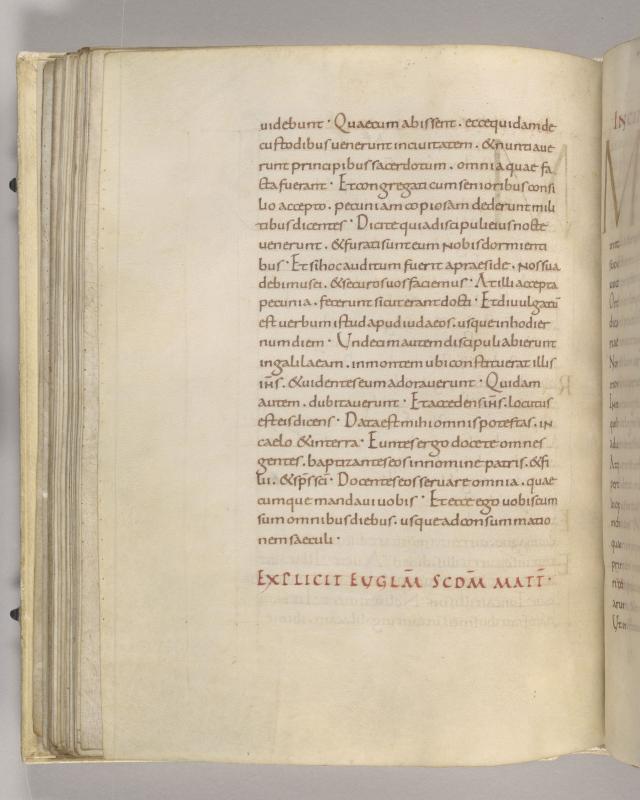 uidebunt · Quaecum abissent . eccequidamde
custodibus uenerunt inciuitatem . &nuntiaue
runt principibus sacerdotum . omnia quae fa
cta fuerant · Et congregati cum senioribus consi
lio accepto . pecuniam copiosam dederunt mili
tibus dicentes · Dicite quia discipuli eius nocte
uenerunt . &furati sunt eum nobis dormienti
bus · Et si hoc auditum fuerit apraeside . nos sua
debimus ei . &securos uos faciemus · At illi accepta
pecunia . fecerunt sicut erant docti · Et diuulgatū
est uerbum istud apud iudaeos . usque in hodier
num diem · Undecim autem discipuli abierunt
in galilaeam . in montem ubi constituerat illis
ih̄s . &uidentes eum adorauerunt · Quidam
autem . dubitauerunt · Et accedens ih̄s . locutus
est eis dicens · Data est mihi omnis potestas . in
caelo &interra · Euntes ergo docete omnes
gentes . baptizantes eos in nomine patris . &fi
lii . &sp̄s sc̄i · Docentes eos seruare omnia . quae
cumque mandaui uobis · Et ecce ego uobiscum
sum omnibus diebus . usque ad consummatio
nem saeculi ·
EXPLICIT EUGLM̄ SCDM̄ MATT̄ ·
IN
M